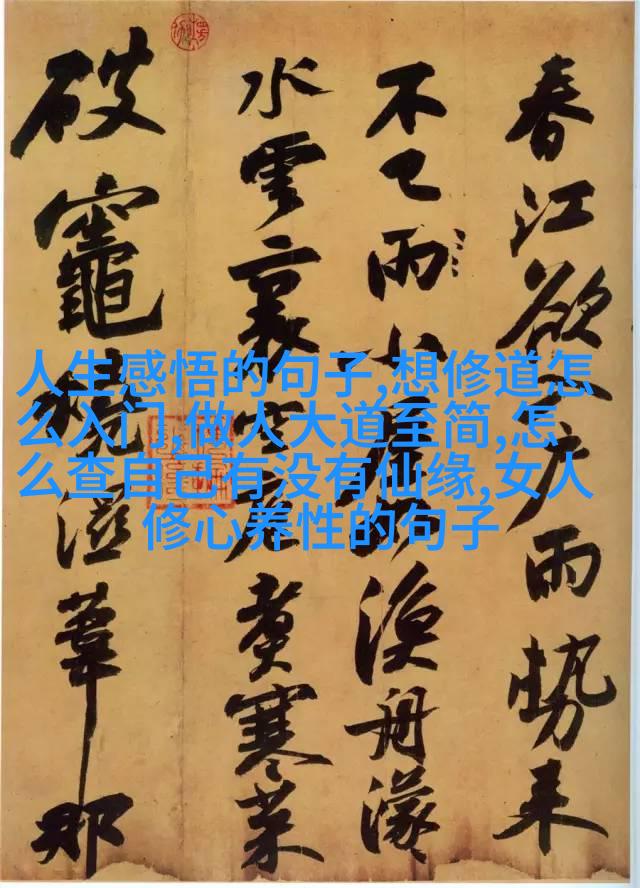 春江欲入戶雨勢来
不已雨小屋如漁舟濛
水雲裏空庖煮寒菜
破竈燒濕葦那
人生感悟的句子,想修道怎
么入门,做人大道至简,怎
么查自己有没有仙缘,女人
修心养性的句子